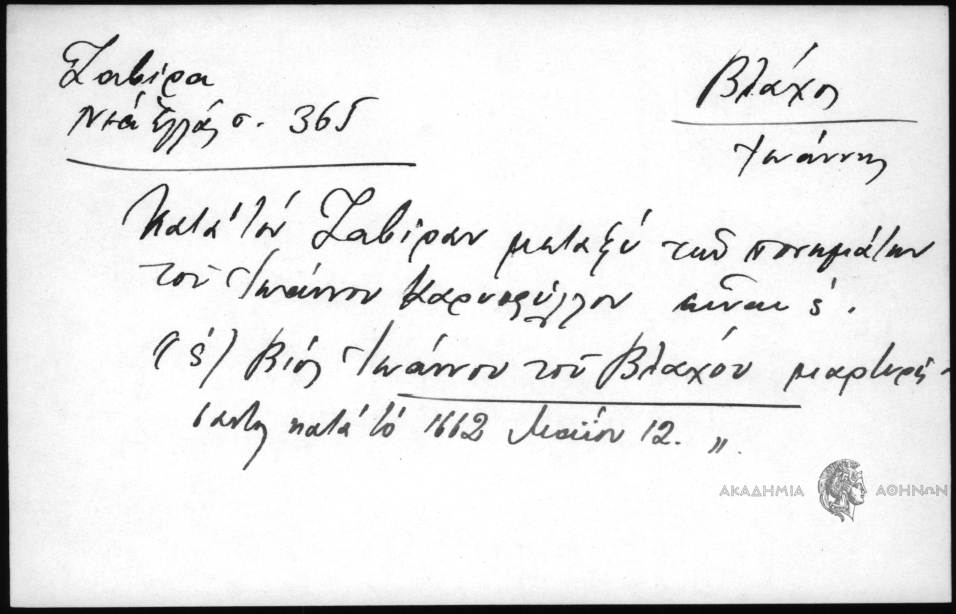 Ζαβίρα
Νέα Ἑλλάς σ. 365
Βλάχος
Ἰωάννης
Κατὰ τὸν Ζαβίραν μεταξὺ τῶν ποιημάτων
τοῦ Ἰωάννου Καρυοφύλλου εἶναι ὁ.
"(ὁ) Βίος Ἰωάννου τοῦ Βλάχου μαρτυρή-
σαντος κατὰ τὸ 1662 Μαΐου 12. "
ΑΚΑΔΗΜΙΑ ΑΘΗΝΩΝ